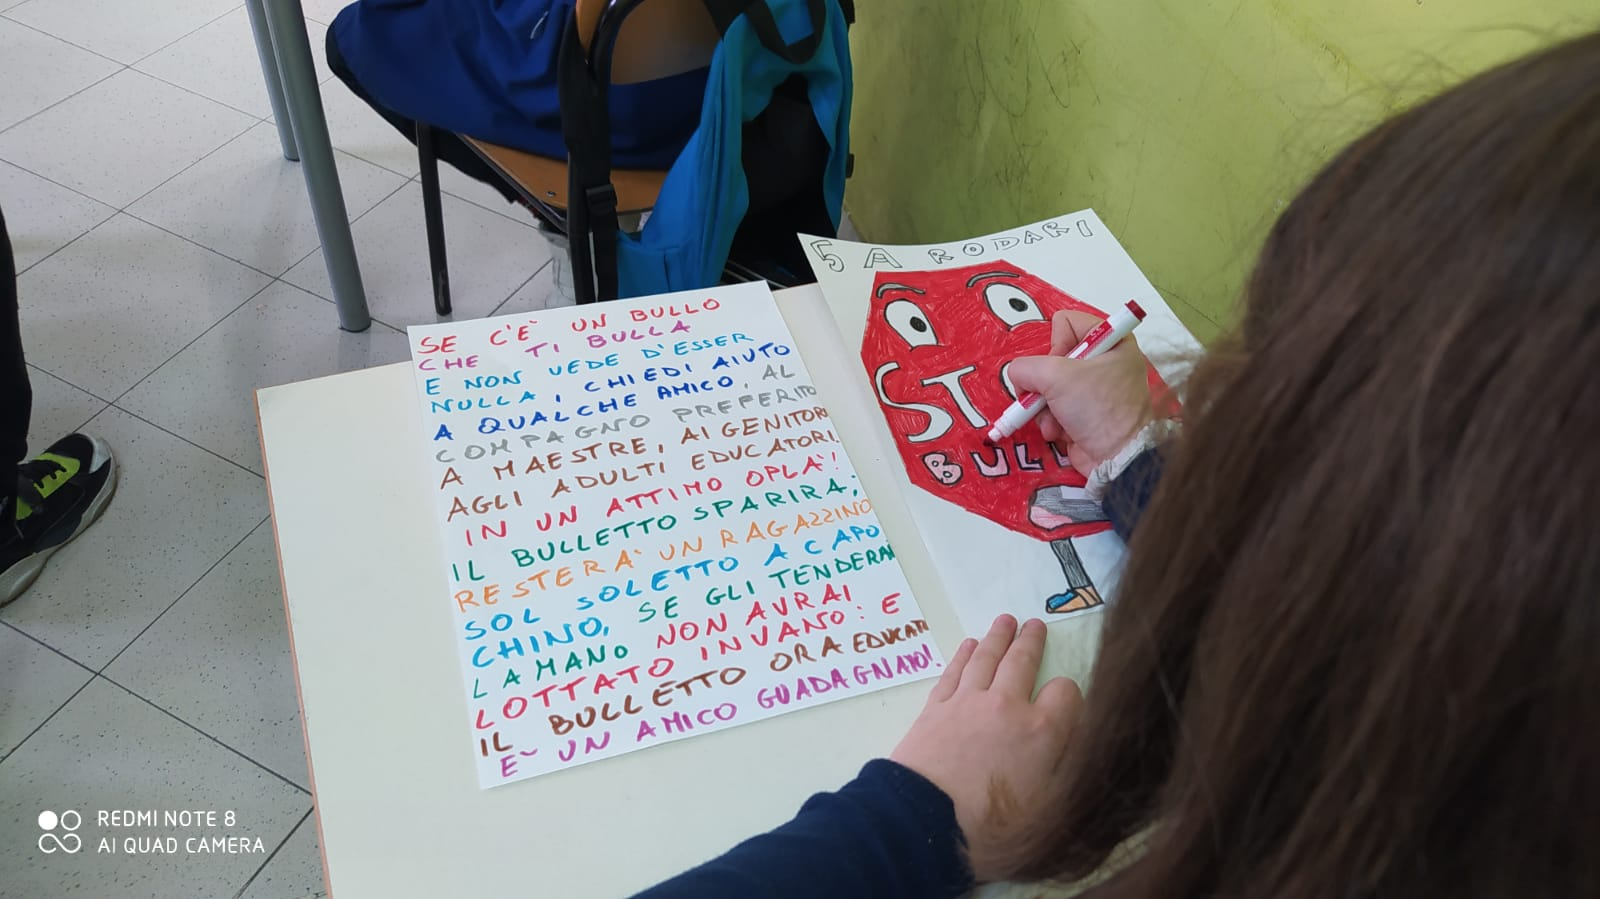 SE C'È UN BULLO
CHE TI BULLA
E NON VEDE D'ESSER
NULLA, CHIEDI AIUTO
A QUALCHE AMICO, AL
COMPAGNO PREFERITO
A MAESTRE, AI GENITORI
AGLI ADULTI EDUCATORI.
IN UN ATTIMO OPLA'!
IL BULLETTO SPARIRA;
RESTERA' UN RAGAZZINO
SOL SOLETTO A CAPO
CHINO, SE GLI TENDERAI
LA MANO NON AVRAI
LOTTATO INVANO: E
IL BULLETTO ORA EDUCATO
E' UN AMICO GUADAGNATO!
5 A RODARI
STO
BULL
REDMI NOTE 8
AI QUAD CAMERA